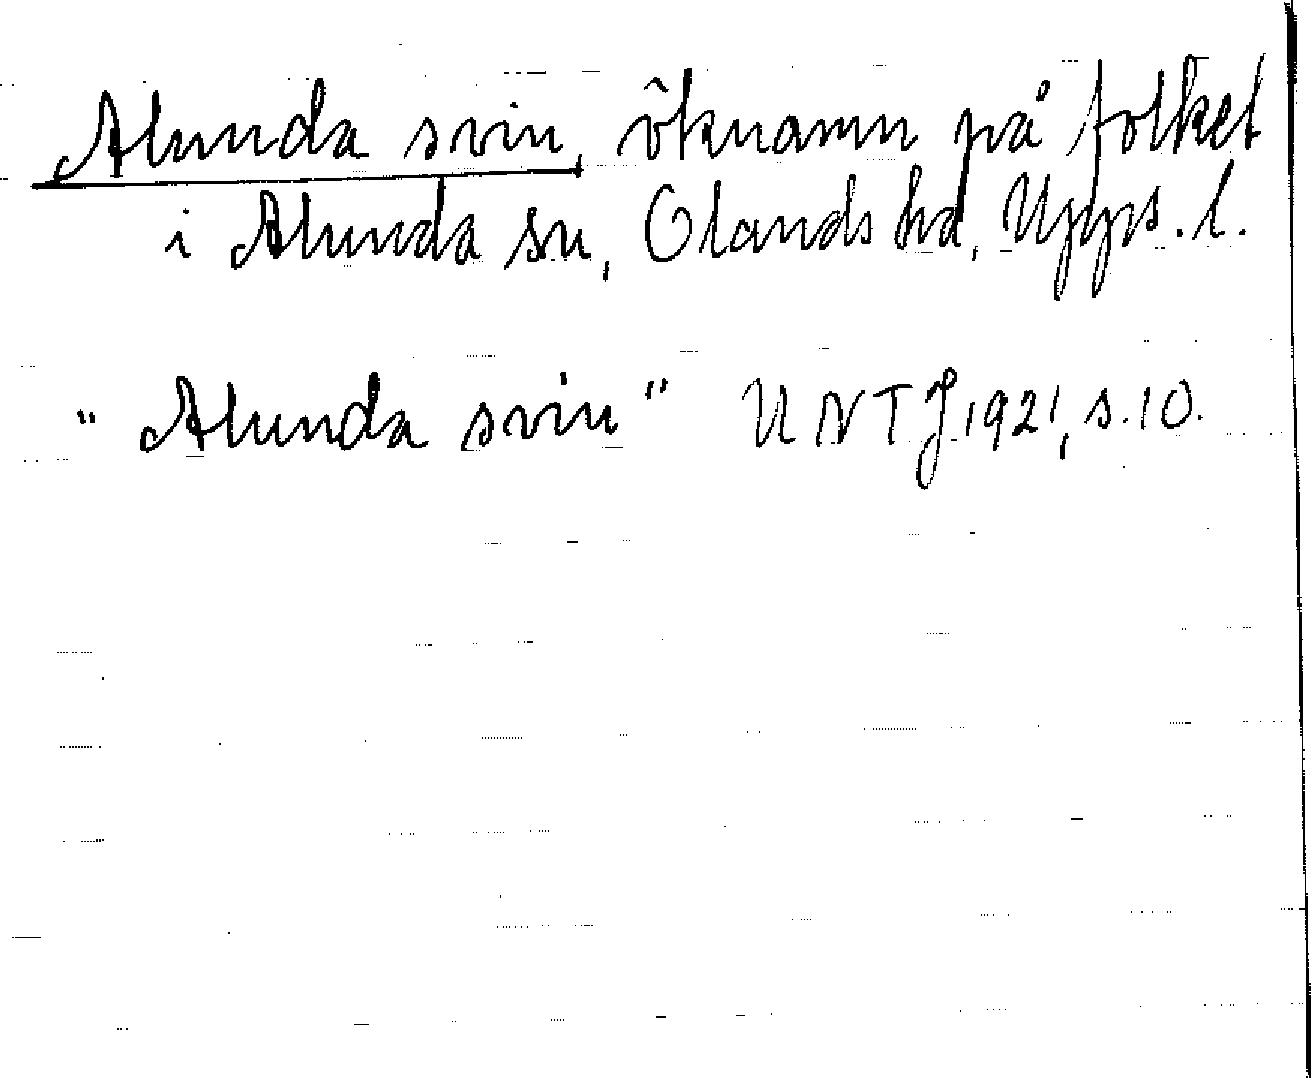 Alunda svin, öknamn på folket
i Alunda sn, Olands hd, Upps. l.
"Alunda svin" UNTJ 1921, s. 10.